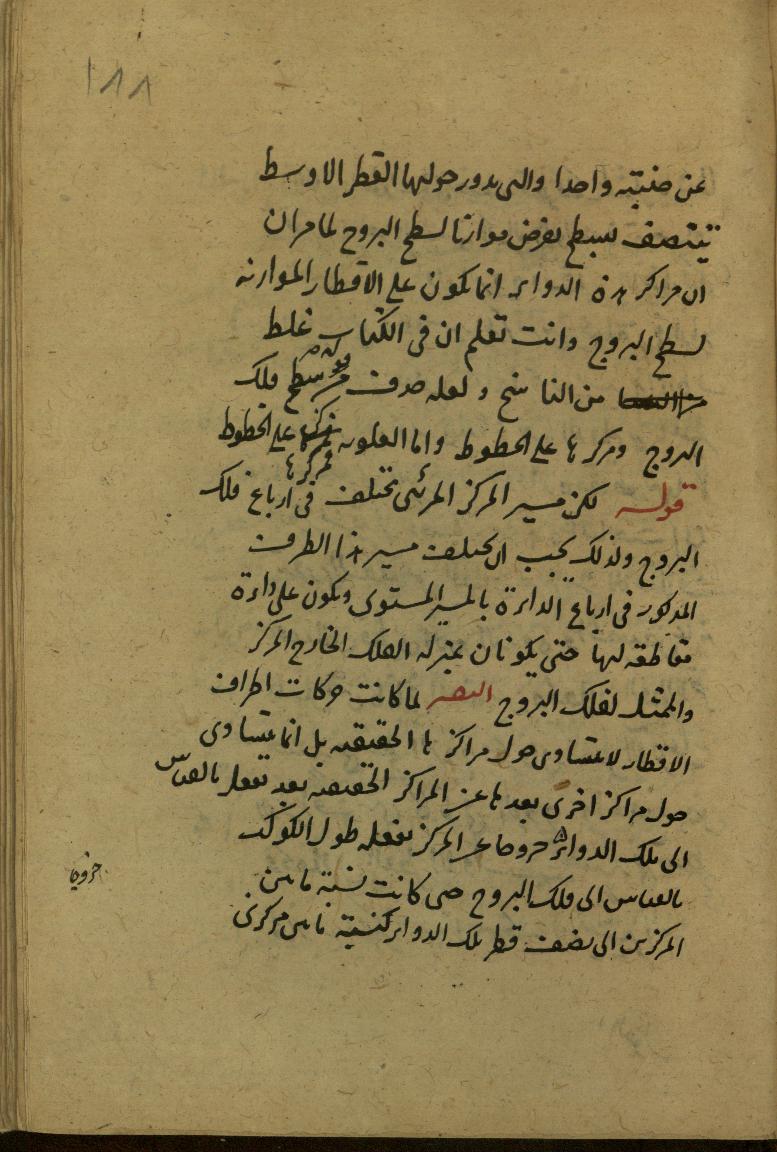 ١٨٨
عن جنبتيه واحدا والتى يدور حولها القطر الاوسط
تنتصف بسطح يفرض موازيا لسطح البروج لما مر ان
ان مراكز هذه الدوائر انما يكون على الاقطار الموازية
لسطح البروج وانت تعلم ان فى الكتاب غلط
من الناسخ ولعله حرف سطح فلك
البروج ومركزها على الخطوط واما العلوية فمركزها على الخطوط
قوله لكن مسير المركز المرئى يختلف فى ارباع فلك
البروج ولذلك يجب ان يختلف مسير هذا الطرف
المذكور فى ارباع الدائرة بالمسير المستوى ويكون على دائرة
مقاطعة لها حتى يكونان بمنزلة الفلك الخارج المركز
والممثل لفلك البروج التفسير لما كانت حركات اطراف
الاقطار لا يتساوى حول مراكزها الحقيقية بل انما يتساوى
حول مراكز اخرى بعدها عن المراكز الحقيقية بعد يفعل بالقياس
الى تلك الدوائر خروجا عن المركز يفعله طول الكوكب
بالقياس الى فلك البروج حتى كانت نسبة ما بين
المركزين الى نصف قطر تلك الدوائر كنسبة ما بين مركزى
خروجا